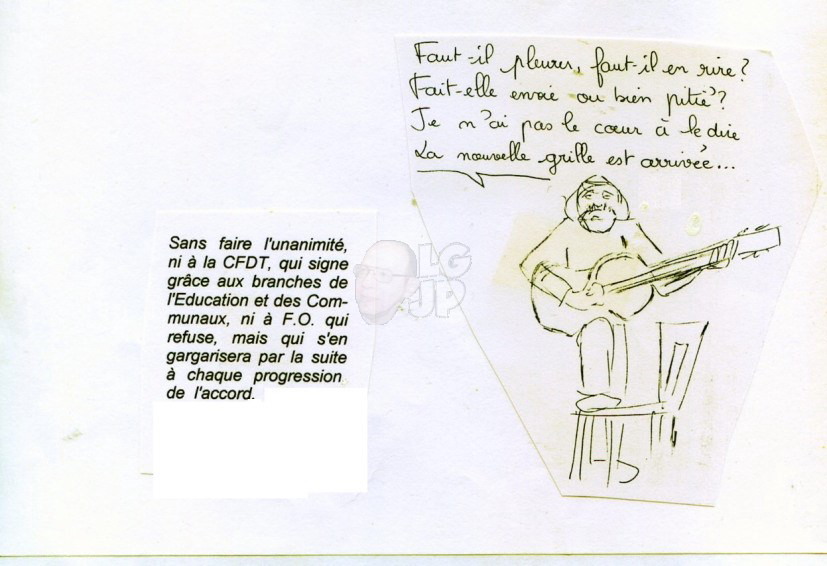 Faut-il pleurer, faut-il en rire?
Fait-elle envie ou bien pitié?
Je n'ai pas le cœur à le dire
La nouvelle grille est arrivée...
Sans faire l'unanimité,
ni à la CFDT, qui signe
grâce aux branches de
l'Education et des Com-
munaux, ni à F.O. qui
refuse, mais qui s'en
gargarisera par la suite
à chaque progression
de l'accord.
LG
JP